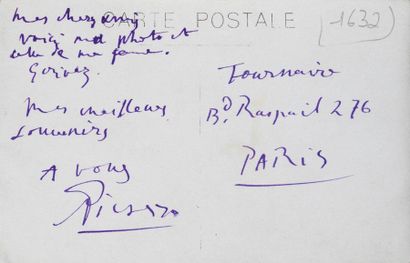 CARTE POSTALE
(1632)
Mes chers amis
voici ma photo et
celle de ma femme.
Ecrivez.
Mes meilleurs
souvenirs
A vous
Picasso
Tournaire
Bd. Raspail 276
PARIS